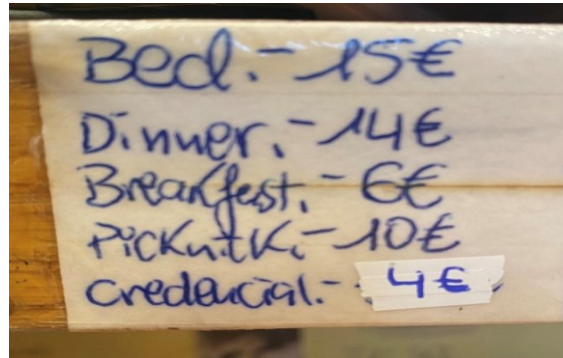 Bed.- 15€
Dinner.- 14€
Breakfast.- 6€
Picknik.- 10€
credencial.- 4€